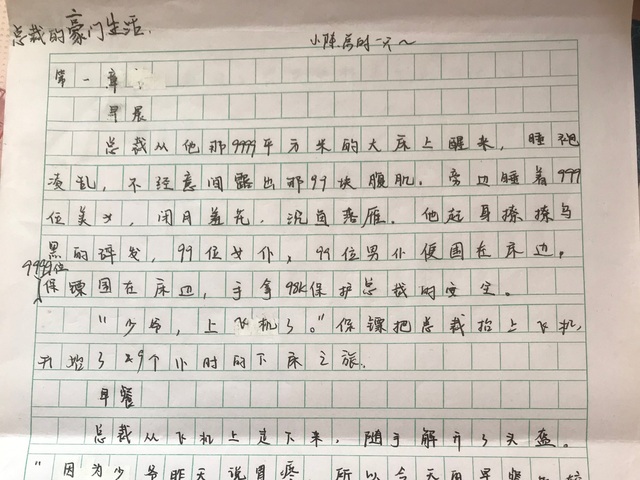 总裁的豪门生活.
小陈房时一只～
第一章
早晨
总裁从他那9999平方米的大床上醒来，睡袍
凌乱，不经意间露出那99块腹肌。旁边睡着999
位美女，闭月羞花，沉鱼落雁。他起身捋捋乌
黑的碎发，99位女仆，99位男仆便围在床边。
9999位
保镖围在床边，手拿98K保护总裁的安全。
“少爷，上飞机了。”保镖把总裁抬上飞机，
开始了 9个小时的下床之旅.
早餐
总裁从飞机上走下来，随手解开了头盔。
“因为少爷昨天说胃疼，所以今天的早餐